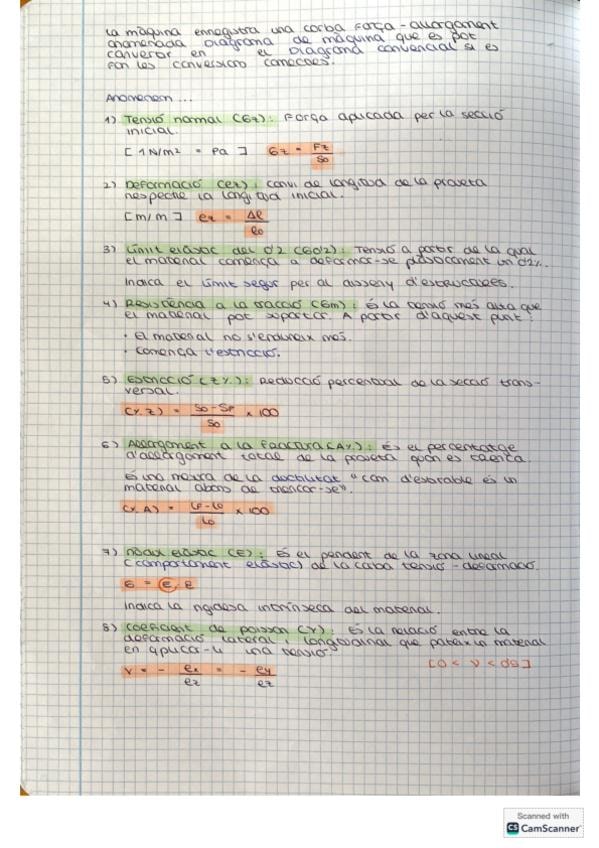 La màquina enregistra una corba força-allargament
anomenada Diagrama de màquina que es pot
convertir en el Diagrama convencial si es
fan les conversions correctes.
Anomenem...
1) Tensió normal (σz): Força aplicada per la secció
inicial.
[1N/m² = Pa] σz = Fz/So
2) Deformació (ez): canvi de longitud de la proveta
respecte la longitud inicial.
[m/m] ez = Δl/lo
3) Límit elàstic del 0'2 (σ0'2): Tensió a partir de la qual
el material comença a deformar-se plàsticament un 0'2%.
Indica el límit segur per al disseny d'estructures.
4) Resistència a la tracció (σm): És la tensió més alta que
el material pot suportar. A partir d'aquest punt:
· El material no s'endureix més.
· Comença l'estricció.
5) Estricció (Z%): Reducció percentual de la secció trans-
versal.
(%Z) = So-SF/So × 100
6) Allargament a la fractura (A%): És el percentatge
d'allargament total de la proveta quan es trenca.
És una mesura de la ductilitat "com d'estirable és un
material abans de trencar-se".
(%A) = LF-Lo/Lo × 100
7) Mòdul elàstic (E): És el pendent de la zona lineal
(comportament elàstic) de la corba tensió-deformació.
σ = E·e
Indica la rigidesa intrínseca del material.
8) Coeficient de poisson (ν): És la relació entre la
deformació lateral i longitudinal que pateix un material
en aplicar-li una tensió. [0 < ν < 0'5]
ν = - ex/ez = - ey/ez
Scanned with
CS CamScanner